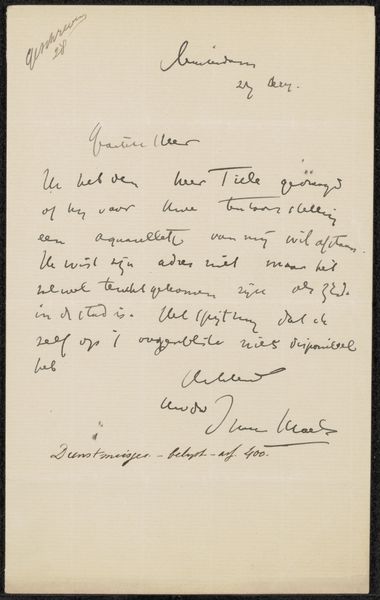 geschreven
28
Amsterdam
Geachte Heer
Ik heb den heer Tiele gevraagd
of hij voor Uwe tentoonstelling
een aquarelletje van mij wil afstaan.
Ik wist zijn adres niet maar het
zal wel terecht gekomen zijn als ZEd.
in de stad is. Het spijt mij dat ik
zelf op 't oogenblik niets disponibel
heb
Achtend
Uw dw
Isaac Israels
Dienstmeisjes - belegt - af. 400.